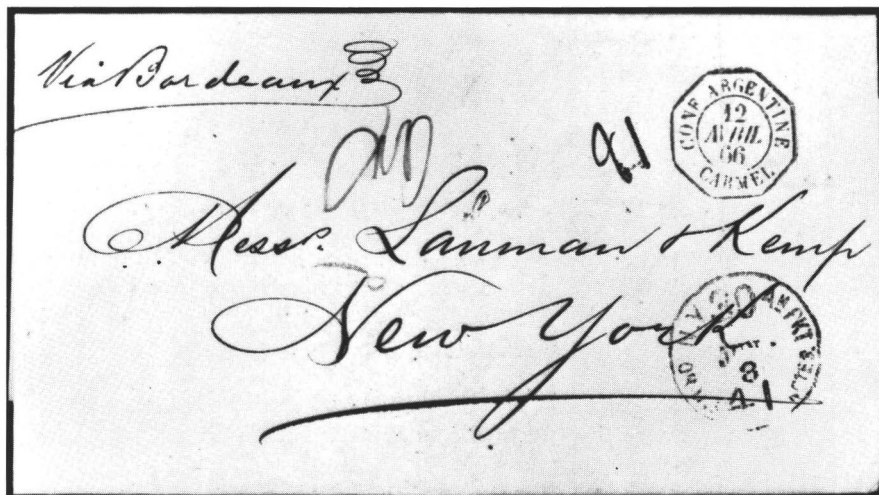 Via Bordeaux
CONF. ARGENTINE
12
AVRIL
66
CARMEL
Messrs. Lanman & Kemp
New York
N.Y.
AM PKT
8